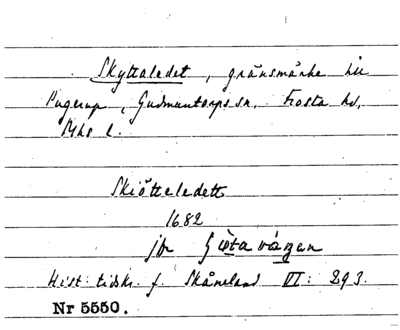 Skyttaledet, gränsmärke till
Pugerup, Gudmuntorps sn. Frosta hd,
Mhs l.
Skiötteledett
1682
jfr Göta vägen
Hist. tidskr. f. Skåneland VI: 293.
Nr 5550.